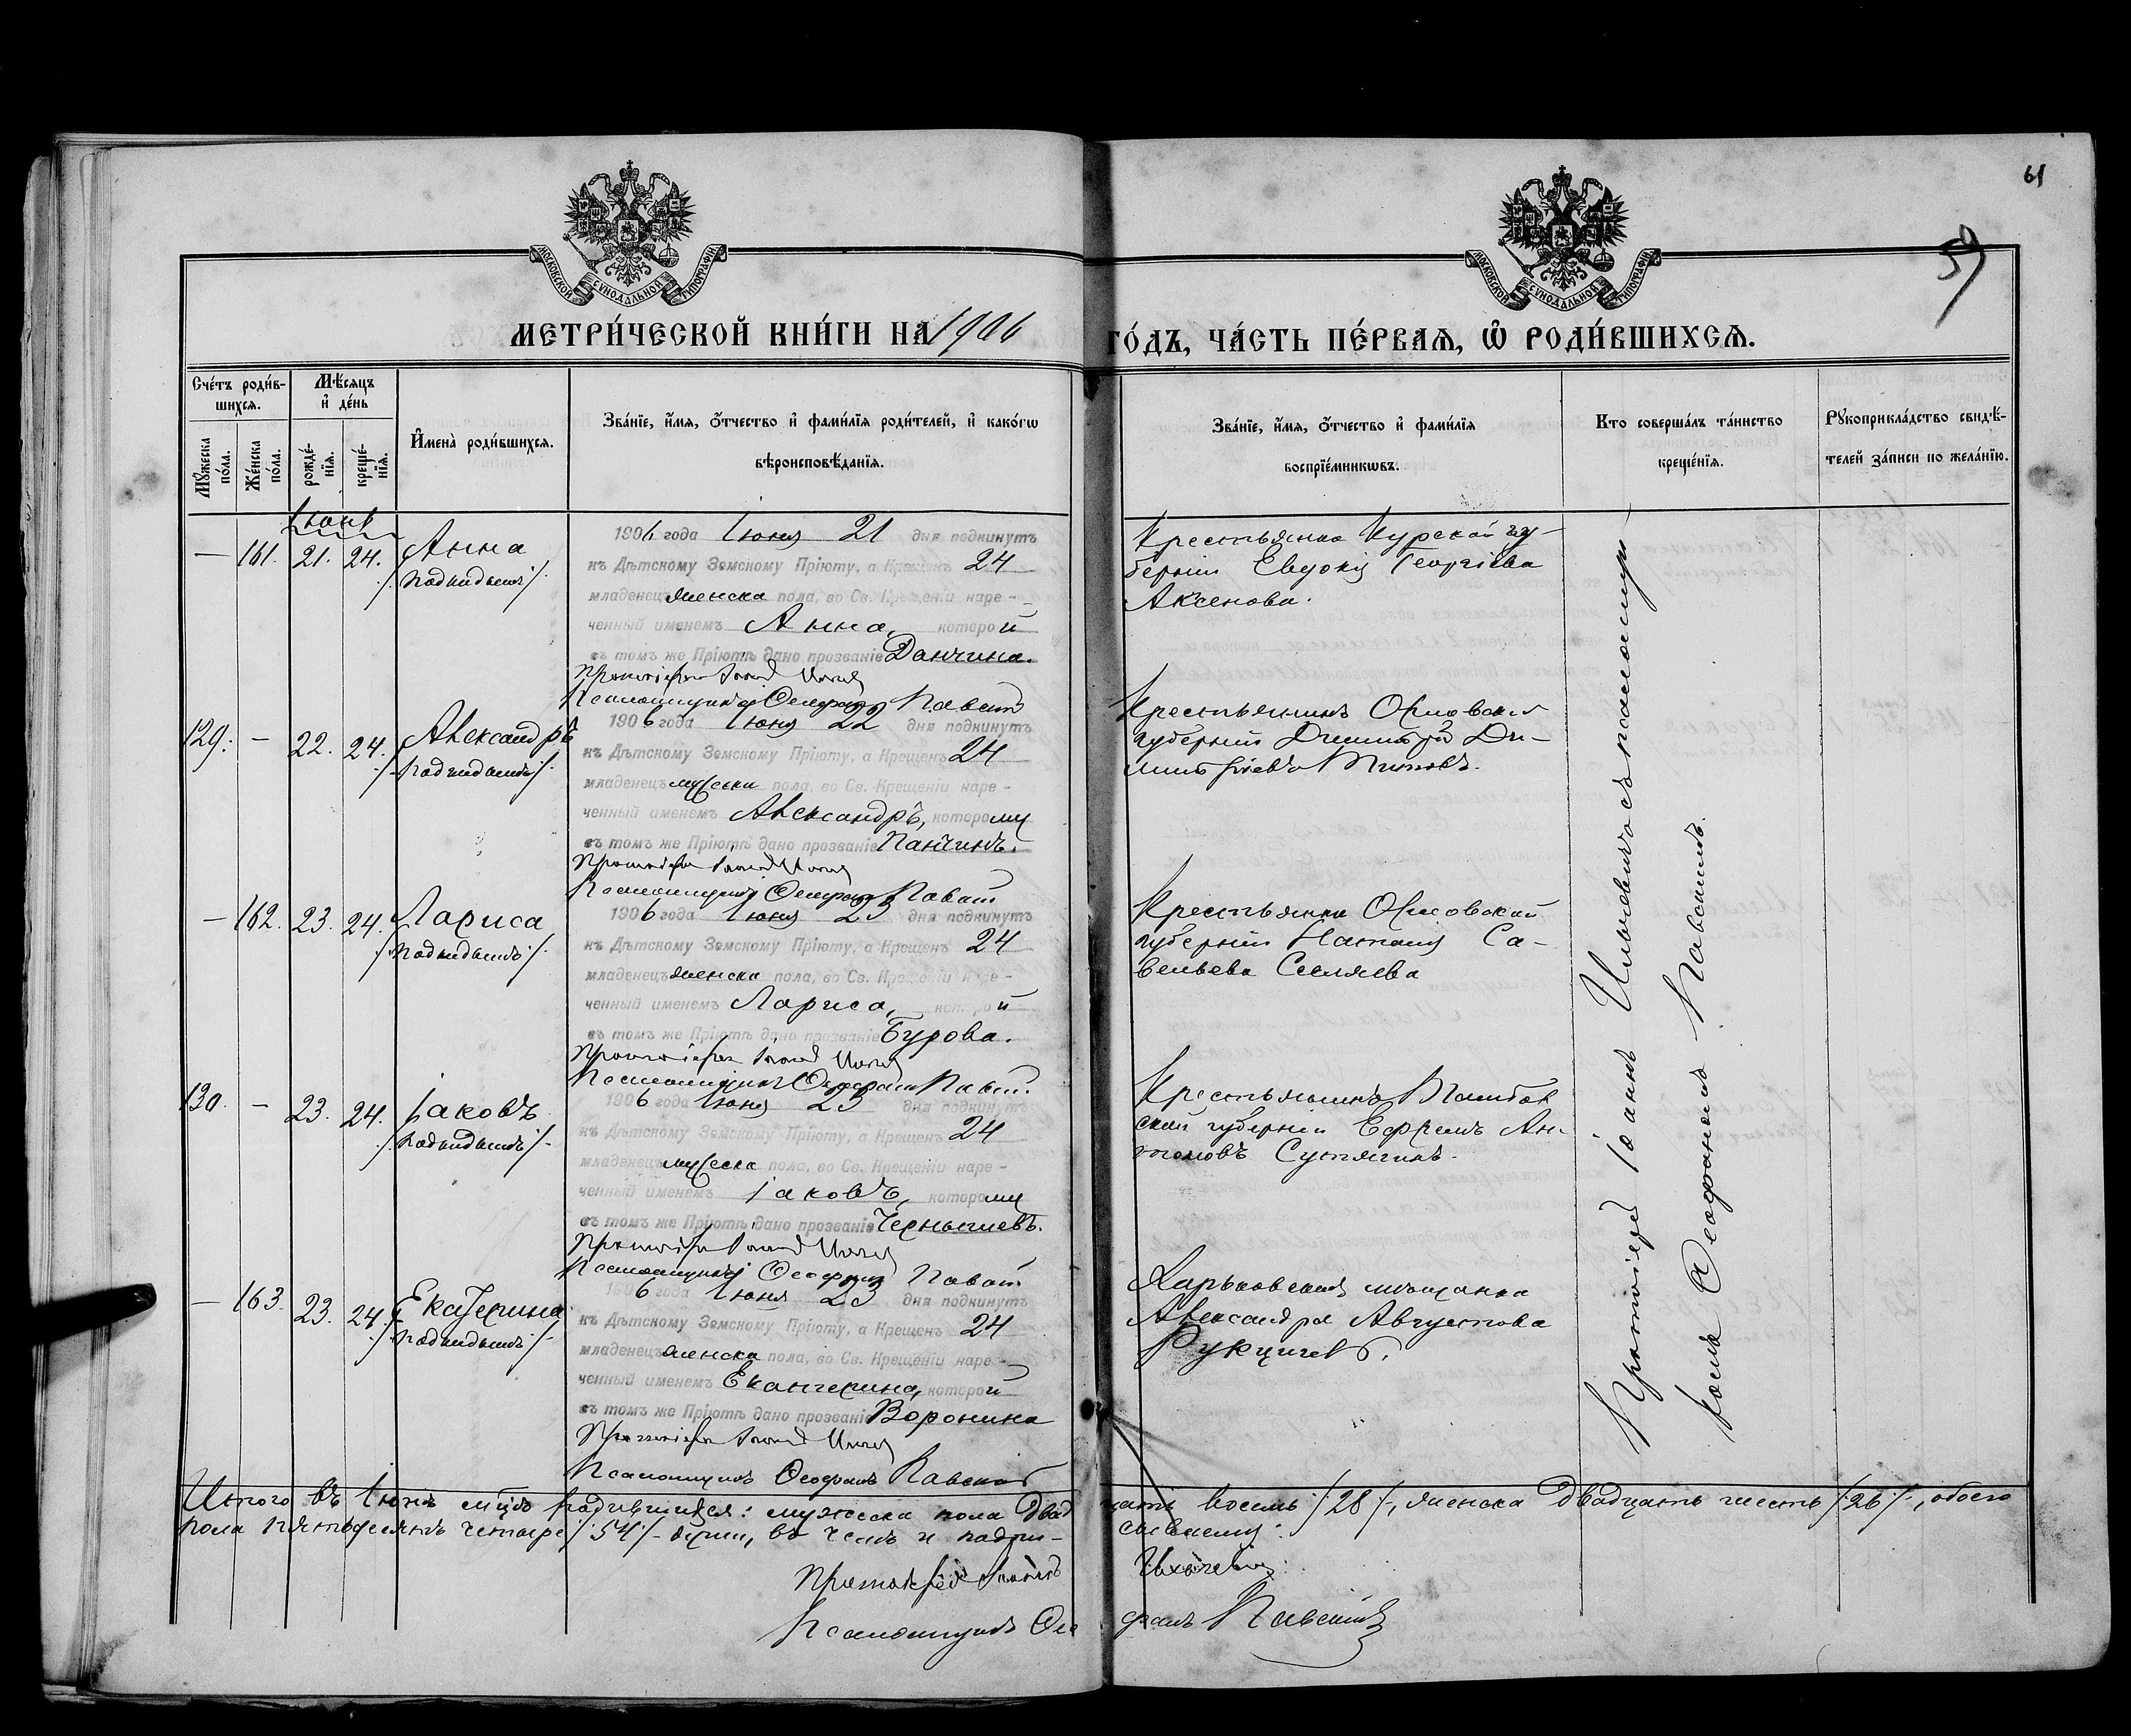 61
59
МОСКОВСКОЙ СУНОДАЛЬНОЙ ТИПОГРАФІИ
МОСКОВСКОЙ СУНОДАЛЬНОЙ ТИПОГРАФІИ
МЕТРИ́ЧЕСКОЙ КНИ́ГИ НА 1906
ГО́ДЪ, ЧА́СТЬ ПЕ́РВАѦ, Ѡ҆ РОДИ́ВШИХСѦ.
Сче́тъ роди́в-
шихсѧ.
Мꙋ́жеска по́ла.
Же́нска по́ла.
Мѣ́сѧцъ
и҆ де́нь
рожде́-
нїѧ.
креще́-
нїѧ.
И҆мена̀ роди́вшихсѧ.
Зва́нїе, и҆́мѧ, ѻ҆́тчество и҆ фами́лїѧ роди́телей, и҆ како́гѡ
вѣроисповѣ́данїѧ.
Зва́нїе, и҆́мѧ, ѻ҆́тчество и҆ фами́лїѧ
воспрїе́мникѡвъ.
Кто соверша́лъ та́инство
креще́нїѧ.
Рꙋкоприкла́дство свидѣ́-
телей за́писи по жела́нїю.
Іюнь
— 161. 21. 24. Анна
/: подкидышъ :/
1906 года Іюня 21 дня подкинутъ
къ Дѣтскому Земскому Пріюту, а Крещенъ 24
младенецъ женска пола, во Св. Крещеніи наре-
ченный именемъ Анна, которой
въ томъ же Пріютѣ дано прозваніе Данчина.
Протоіерей Іоаннъ
Псаломщикъ Ѳеофанъ Павскій
Крестьянка Курской гу-
берніи Евдокія Георгіева
Аксенова.
129. — 22. 24. Александръ
/: подкидышъ :/
1906 года Іюня 22 дня подкинутъ
къ Дѣтскому Земскому Пріюту, а Крещенъ 24
младенецъ мужеска пола, во Св. Крещеніи наре-
ченный именемъ Александръ, которому
въ томъ же Пріютѣ дано прозваніе Панчинъ.
Протоіерей Іоаннъ
Псаломщикъ Ѳеофанъ
Крестьянинъ Орловской
губерніи Димитрій Ди-
митріевъ Титовъ.
— 162. 23. 24. Лариса
/: подкидышъ :/
1906 года Іюня 23 дня подкинутъ
къ Дѣтскому Земскому Пріюту, а Крещенъ 24
младенецъ женска пола, во Св. Крещеніи наре-
ченный именемъ Лариса, которой
въ томъ же Пріютѣ дано прозваніе Бурова.
Протоіерей Іоаннъ
Псаломщикъ Ѳеофанъ
Крестьянка Орловской
губерніи Наталія Са-
вельева
130. — 23. 24. Іаковъ
/: подкидышъ :/
1906 года Іюня 23 дня подкинутъ
къ Дѣтскому Земскому Пріюту, а Крещенъ 24
младенецъ мужеска пола, во Св. Крещеніи наре-
ченный именемъ Іаковъ, которому
въ томъ же Пріютѣ дано прозваніе Чернышевъ.
Протоіерей Іоаннъ
Псаломщикъ Ѳеофанъ
Крестьянинъ Тамбов
ской губерніи Ефремъ Ан-
Сутягинъ.
— 163. 23. 24. Екатерина
/: подкидышъ :/
1906 года Іюня 23 дня подкинутъ
къ Дѣтскому Земскому Пріюту, а Крещенъ 24
младенецъ женска пола, во Св. Крещеніи наре-
ченный именемъ Екатерина, которой
въ томъ же Пріютѣ дано прозваніе Воронина
Протоіерей Іоаннъ
Псаломщикъ Ѳеофанъ Павскій
Харьковская мѣщанка
Александра Августова
Протоіерей Іоаннъ съ псаломщи-
комъ Ѳеофаномъ Павскимъ.
Итого въ Іюнѣ мцѣ родившихся: мужеска пола двадцать восемь /:28:/, женска двадцать шесть /:26:/, обоего
пола пятьдесятъ четыре /:54:/ души, въ чемъ и подпи-
сываемся:
Протоіерей Іоаннъ
Псаломщикъ Ѳеофанъ Павскій